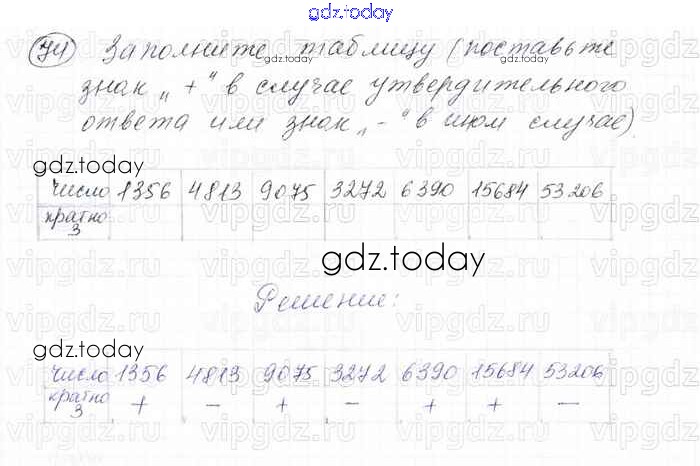 gdz.today
74 Заполните таблицу (поставьте
gdz.today
знак „+“ в случае утвердительного
ответа или знак „-“ в ином случае).
gdz.today
число 1356 4813 9075 3272 6390 15684 53206
кратно 3
gdz.today
Решение:
gdz.today
число 1356 4813 9075 3272 6390 15684 53206
кратно 3 + - + - + + -
vipgdz.ru